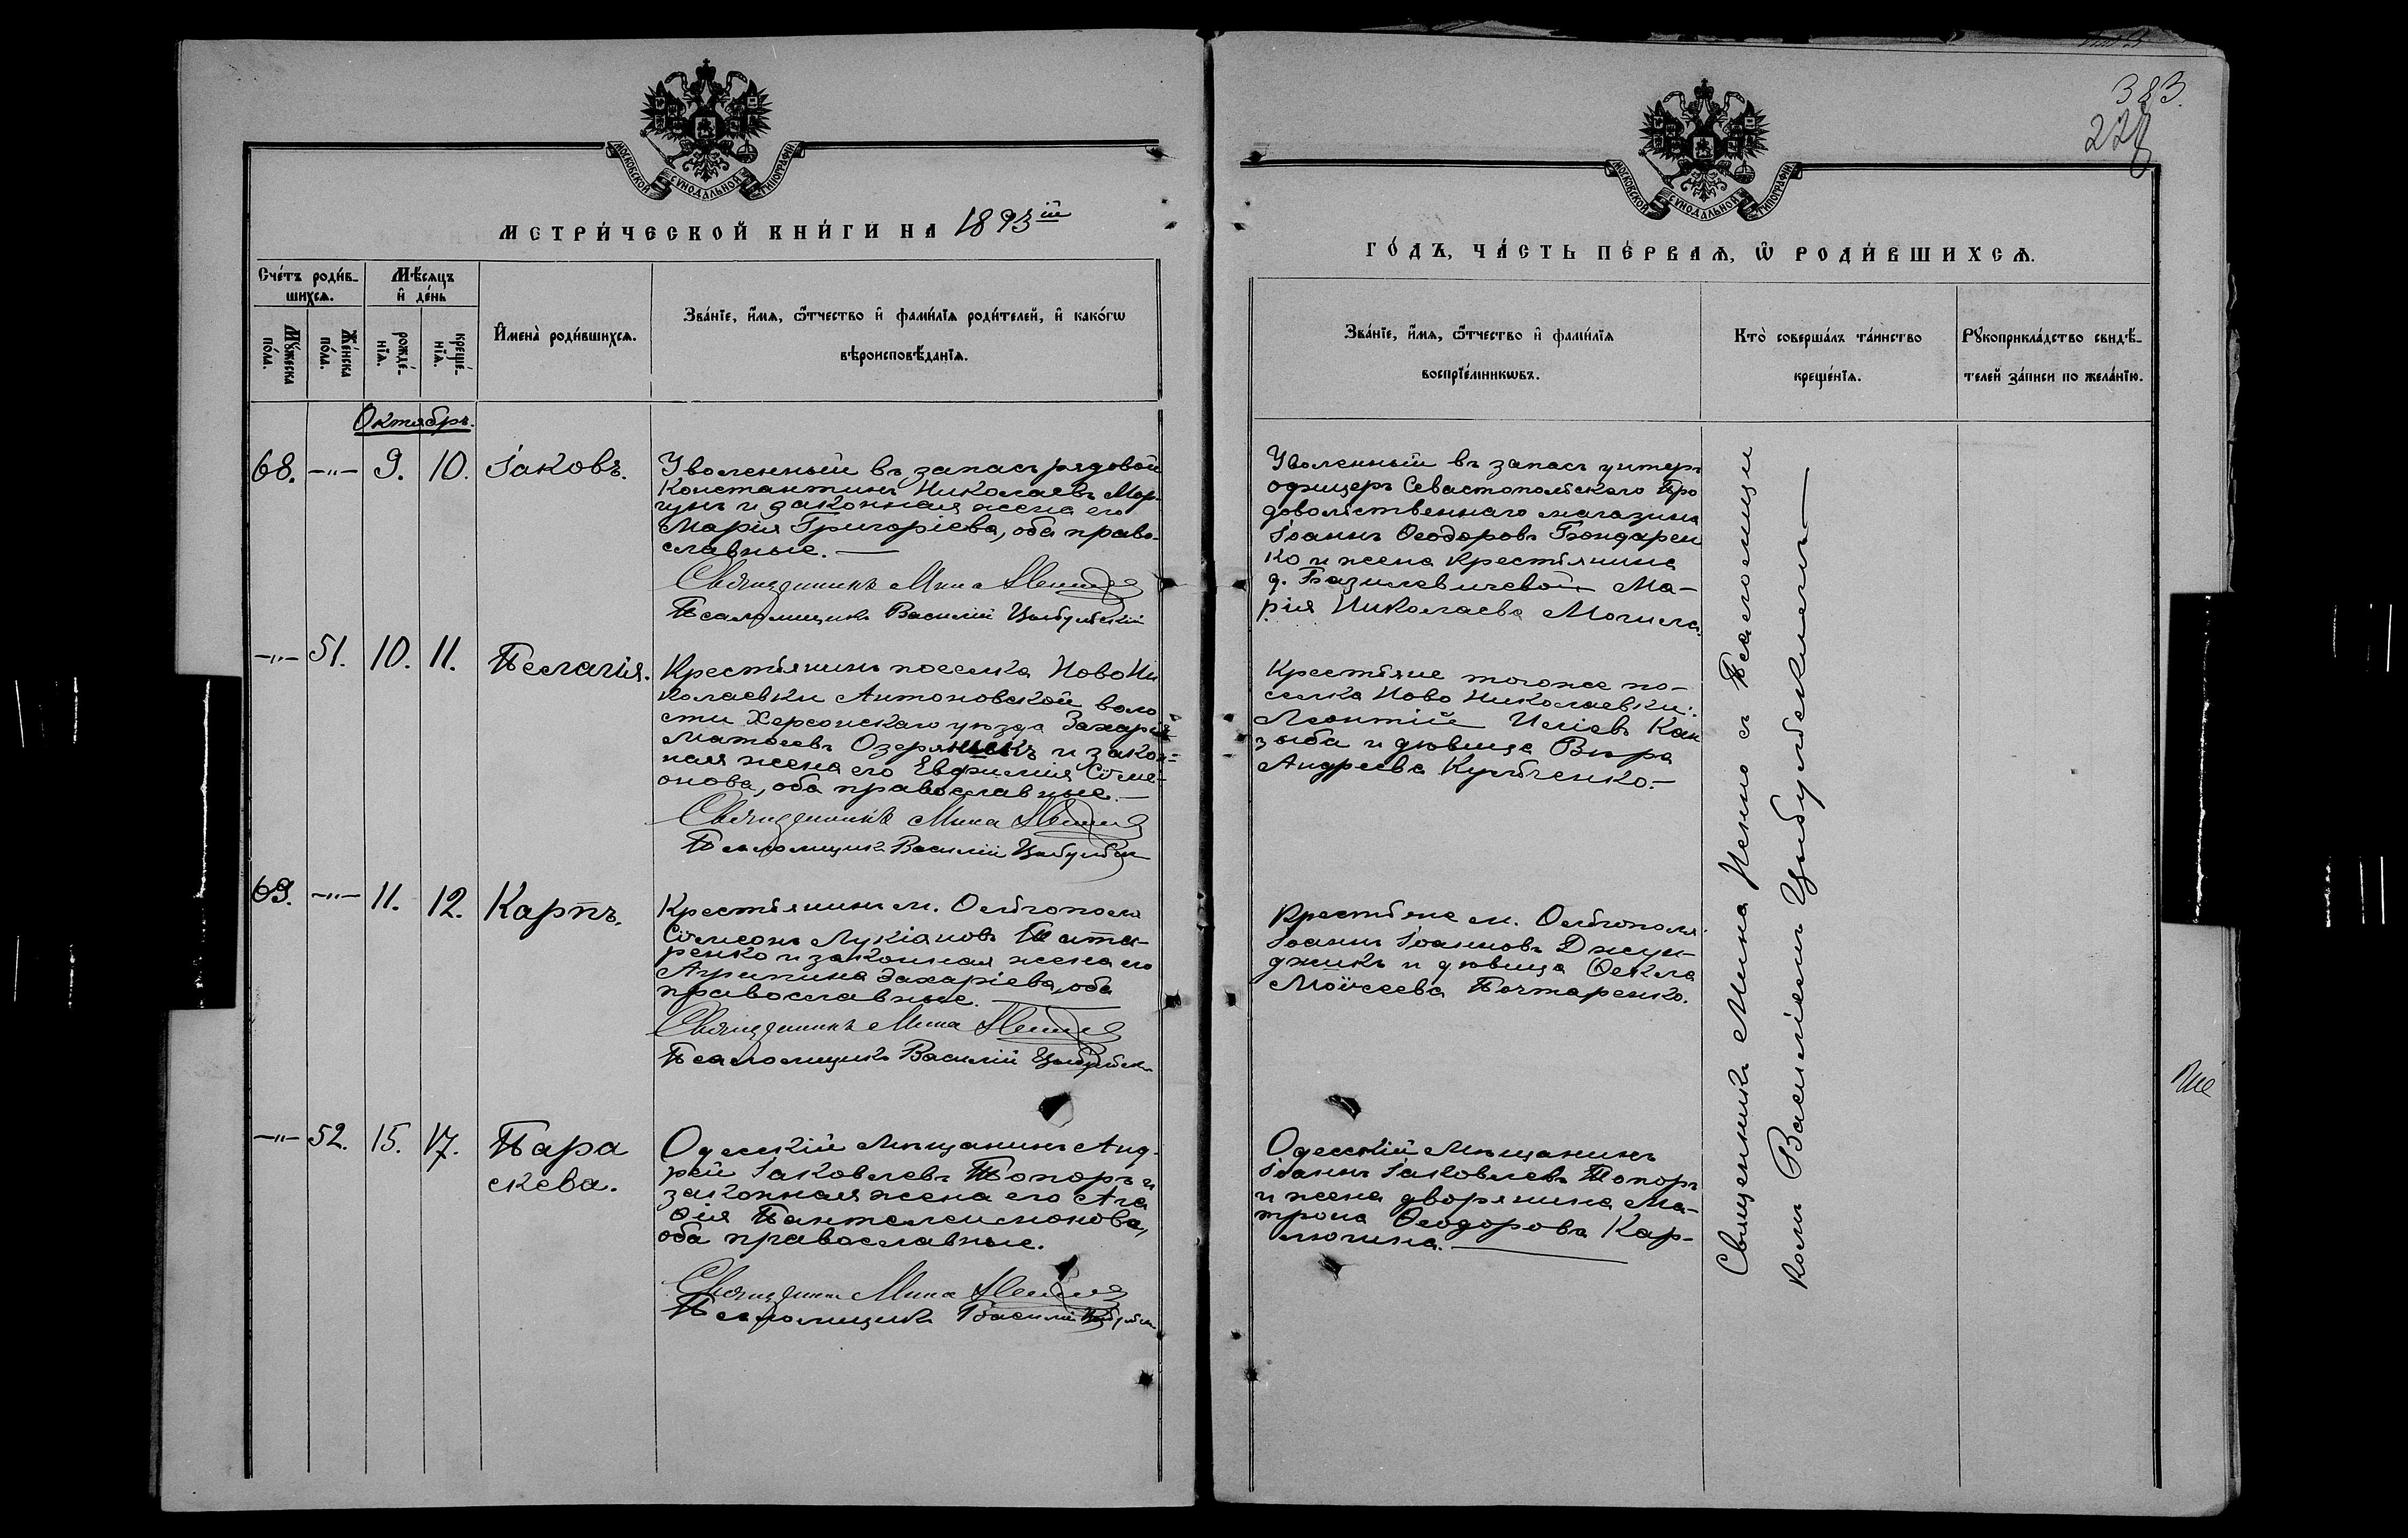 383.
МОСКОВСКОЙ СѴНОДАЛЬНОЙ ТИПОГРАФІИ
МОСКОВСКОЙ СѴНОДАЛЬНОЙ ТИПОГРАФІИ
МЕТРИ́ЧЕСКОЙ КНИ́ГИ НА 1893 ій
ГО́ДЪ, ЧА́СТЬ ПЕ́РВАѦ, Ѽ РОДИ́ВШИХСѦ.
Сче́тъ роди́в-
шихсѧ.
Мѣ́сяцъ
и҆ де́нь
Мꙋ́жеска
по́ла.
Же́нска
по́ла.
рожде́-
нїѧ.
креще́-
нїѧ.
И҆мена̀ роди́вшихсѧ.
Зва́нїе, и҆́мѧ, ѻ҆́тчество и҆ фами́лїѧ роди́телей, и҆ како́гѡ
вѣроисповѣ́данїѧ.
Зва́нїе, и҆́мѧ, ѻ҆́тчество и҆ фами́лїѧ
воспрїе́мникѡвъ.
Кто̀ соверша́лъ та́инство
креще́нїѧ.
Рꙋкоприкла́дство свидѣ́-
телей за́писи по жела́нїю.
Октябрь.
68. —"— 9. 10. Іаковъ.
Уволенный въ запасъ рядовой
Константинъ Николаевъ Мор-
гунъ и законная жена его
Марія Григоріева, оба право-
славные. —
Священникъ Мина
Псаломщикъ Василій Цыбульскій
Уволенный въ запасъ унтеръ
офицеръ Севастопольскаго Про
довольственнаго магазина
Іоаннъ Ѳеодоровъ Бондарен
ко и жена крестьянина
д. Базилевичевой Ма-
рія Николаева Могила.
—"— 51. 10. 11. Пелагія.
Крестьянинъ поселка Ново Ни
колаевки Антоновской воло
сти Херсонскаго уѣзда Захарія
Матѳеевъ Озерянскъ и закон=
ная жена его Евфимія Сѵме-
онова, оба православные. —
Священникъ Мина
Псаломщикъ Василій Цыбульскі
Крестьяне тогоже по-
селка Ново Николаевки:
Леонтій Иліевъ Кан
зыба и дѣвица Вѣра
Андреева Кульченко. —
69. —"— 11. 12. Карпъ.
Крестьянинъ м. Ольгополя
Сѵмеонъ Лукіановъ Тита-
ренко и законная жена его
Агрипина Захаріева, оба
православные. —
Священникъ Мина
Псаломщикъ Василій Цыбульск
Крестьяне м. Ольгополя
Іоаннъ Іоанновъ Джун-
джикъ и дѣвица Ѳекла
Моѵсеева Почтаренко.
—"— 52. 15. 17. Пара
скева.
Одесскій Мѣщанинъ Анд-
рей Іаковлевъ Топоръ и
законная жена его Ага
ѳія Пантелеимонова,
оба православные.
Священникъ Мина
Псаломщикъ Василій Цыбульск
Одесскій Мѣщанинъ
Іоаннъ Іаковлевъ Топоръ
и жена дворянина Ма-
трона Ѳеодорова Кар-
люгина. —
Священникъ Мина Ненно съ Псаломщи
комъ Василіемъ Цыбульскимъ —